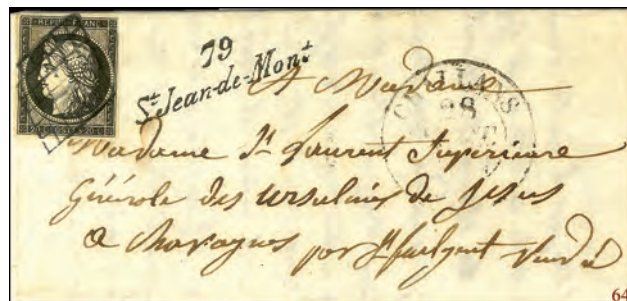 REPUB. FRANC.
20 C. POSTES 20 C.
79
St Jean-de-Mont
CHALLANS
28
A Madame
Madame St Laurent Supérieure
Générale des Ursulines de Jésus
a Chavagnes par St fulgent Vendée
64